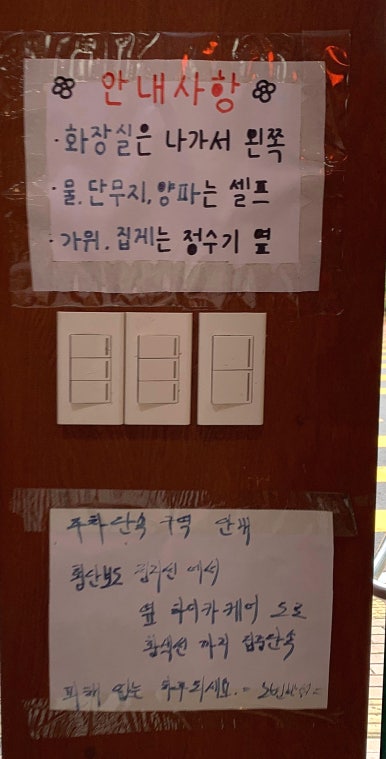 안내사항
· 화장실은 나가서 왼쪽
· 물, 단무지, 양파는 셀프
· 가위, 집게는 정수기 옆
주차단속 구역 안내
횡단보도 정지선 에서
옆 하이카케어 도로
황색선 까지 집중단속
피해 없는 하루되세요.